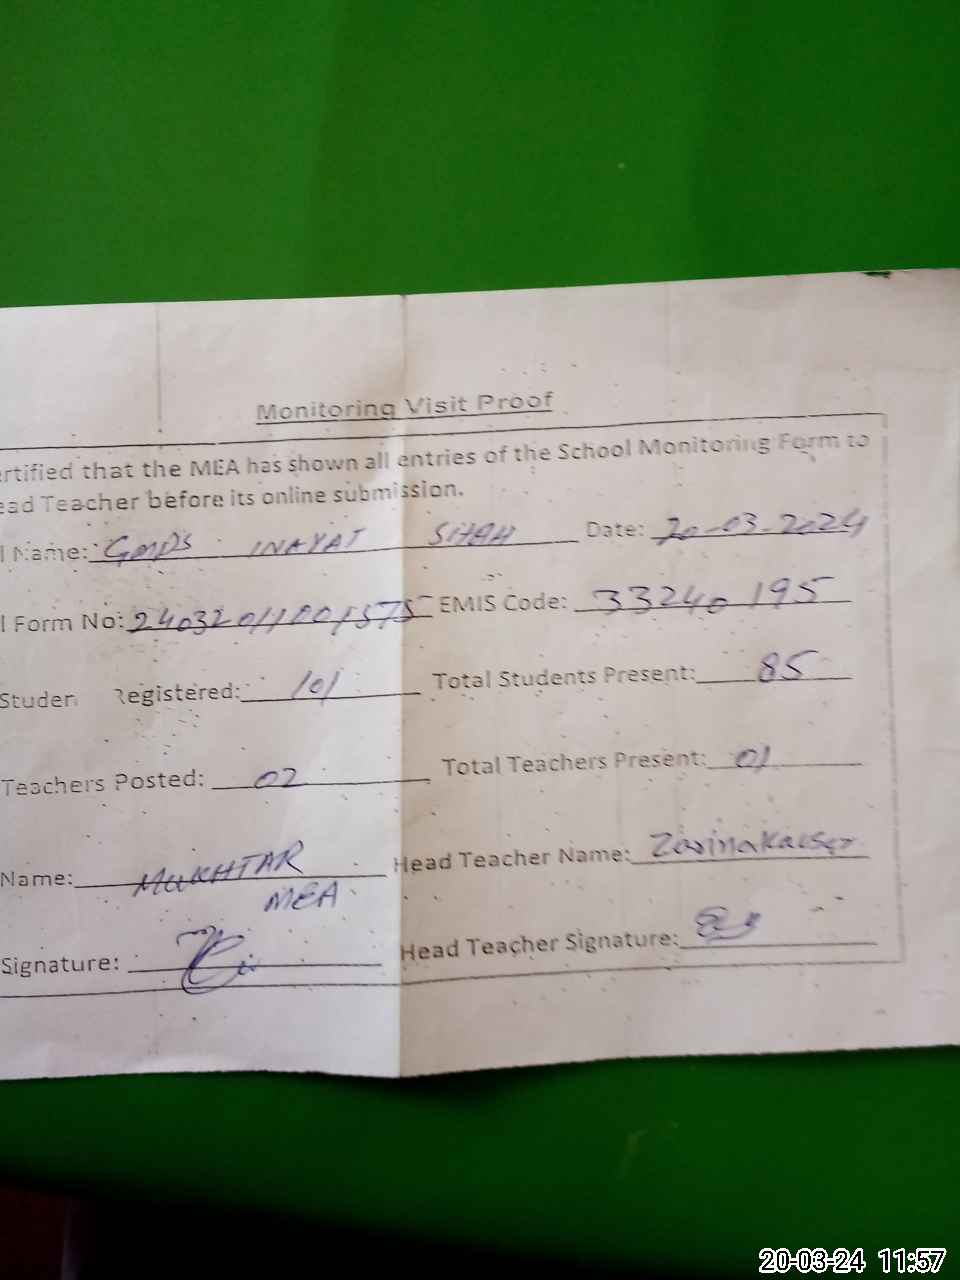 Monitoring Visit Proof
ertified that the MEA has shown all entries of the School Monitoring Form to
ead Teacher before its online submission.
l Name: GMPS INAYAT SHAH Date: 20-03-2024
l Form No: 24032011001575 EMIS Code: 33240195
Studen Registered: 101 Total Students Present: 85
Teachers Posted: 02 Total Teachers Present: 01
Name: MUKHTAR Head Teacher Name: Zarina Kausar
MEA
Signature: Head Teacher Signature:
20-03-24 11:57